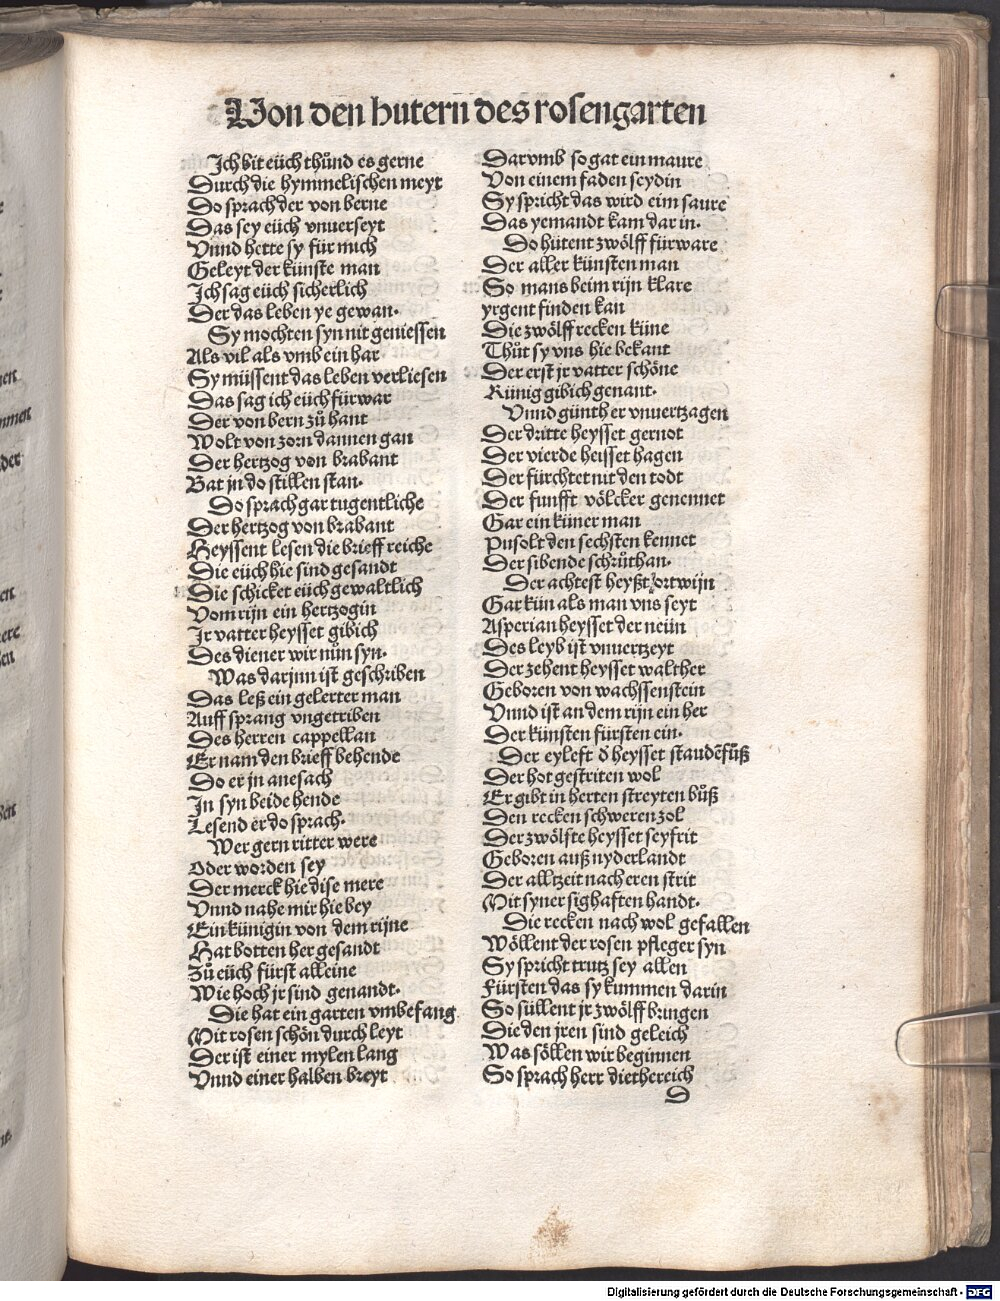 Von den hutern des rosengarten
Ich bit eüch thünd es gerne
Durch die hymmelischen meyt
Do sprach der von berne
Das sey eüch vnuerseyt
Vnnd hette sy für mich
Geleyt der künste man
Ich sag eüch sicherlich
Der das leben ye gewan.
Sy mochten syn nit geniessen
Als vil als vmb ein har
Sy müssent das leben verliesen
Das sag ich eüch für war
Der von bern zů hant
Wolt von zorn dannen gan
Der hertzog von brabant
Bat jn do stillen stan.
Do sprach gar tugentliche
Der hertzog von brabant
Heyssent lesen die brieff reiche
Die eüch hie sind gesandt
Die schicket eüch gewaltlich
Vom rijn ein hertzogin
Jr vatter heysset gibich
Des diener wir nün syn.
Was darjnn ist geschriben
Das leß ein gelerter man
Auff sprang vngetriben
Des herren cappellan
Er nam den brieff behende
Do er jn anesach
In syn beide hende
Lesend er do sprach.
Wer gern ritter were
Oder worden sey
Der merck hie dise mere
Vnnd nahe mir hie bey
Ein künigin von dem rijne
Hat botten her gesandt
Zů eüch fürst alleine
Wie hoch jr sind genandt.
Die hat ein garten vmbefang
Mit rosen schön durch leyt
Der ist einer mylen lang
Vnnd einer halben breyt
Darvmb so gat ein maure
Von einem faden seydin
Sy spricht das wird eim saure
Das yemandt kam dar in.
Do hütent zwölff fürware
Der aller künsten man
So mans beim rijn klare
yrgent finden kan
Die zwölff recken küne
Thůt sy vns hie bekant
Der erst jr vatter schöne
Künig gibich genant.
Vnnd günther vnuertzagen
Der dritte heysset gernot
Der vierde heisset hagen
Der fürchtet nit den todt
Der funfft völcker genennet
Gar ein küner man
Pusolt den sechsten kennet
Der sibende schrůthan.
Der achtest heyßt ortwijn
Gar kün als man vns seyt
Asperian heysset der neün
Des leyb ist vnuertzeyt
Der zehent heysset walther
Geboren von wachssenstein
Vnnd ist an dem rijn ein her
Der künsten fürsten ein.
Der eyleft d̕ heysset staudēfůß
Der hot gestriten wol
Er gibt in herten streyten bůß
Den recken schweren zol
Der zwölfte heysset seyfrit
Geboren auß nyderlandt
Der alltzeit nach eren strit
Mit syner sighaften handt.
Die recken nach wol gefallen
Wöllent der rosen pfleger syn
Sy spricht trutz sey allen
Fürsten das sy kummen darin
So süllent jr zwölff bringen
Die den jren sind geleich
Was söllen wir beginnen
So sprach herr diethereich
D
Digitalisierung gefördert durch die Deutsche Forschungsgemeinschaft - DFG